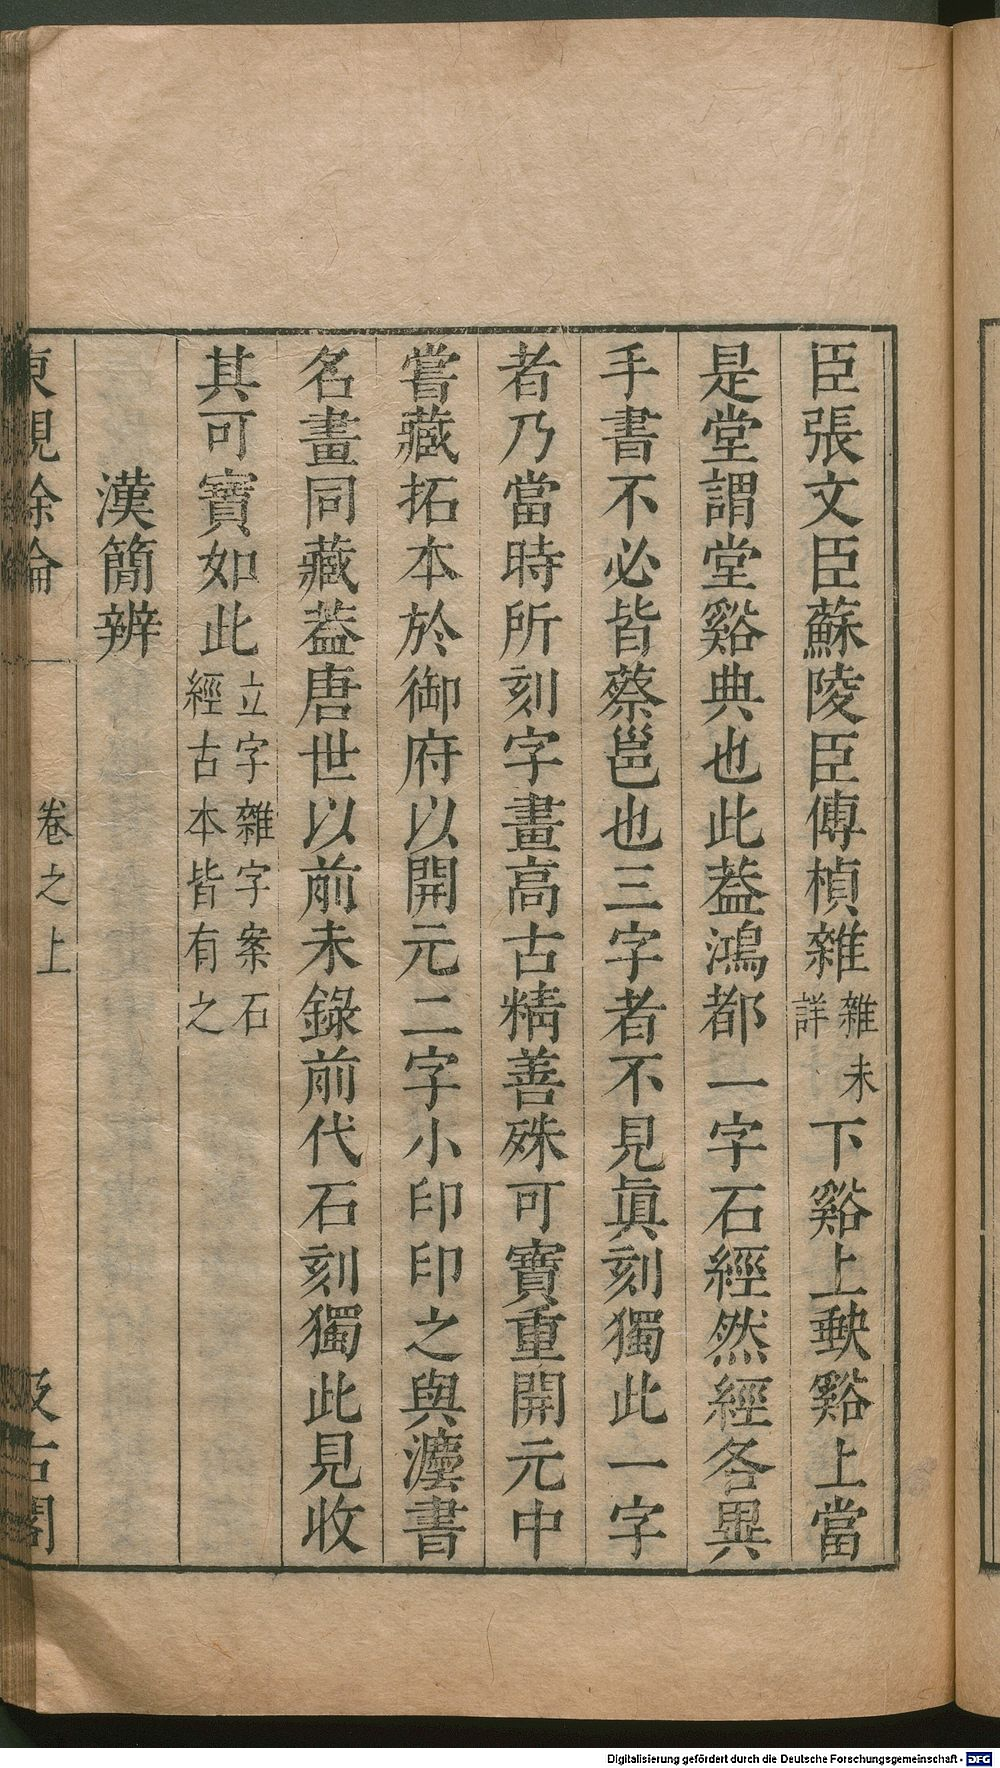 臣張文臣蘇陵臣傅楨雜雜未詳下谿上𡙇谿上當
是堂谓堂谿典也此葢鴻都一字石經然經各異
手書不必皆蔡邕也三字者不見眞刻獨此一字
者乃當時所刻字畫高古精善殊可寶重開元中
嘗藏拓本於御府以開元二字小印印之與灋書
名畫同藏葢唐世以前未錄前代石刻獨此見收
其可寶如此立字雜字案石經古本皆有之
漢簡辨
東觀餘論
卷之上
汲古閣
Digitalisierung gefördert durch die Deutsche Forschungsgemeinschaft - DFG